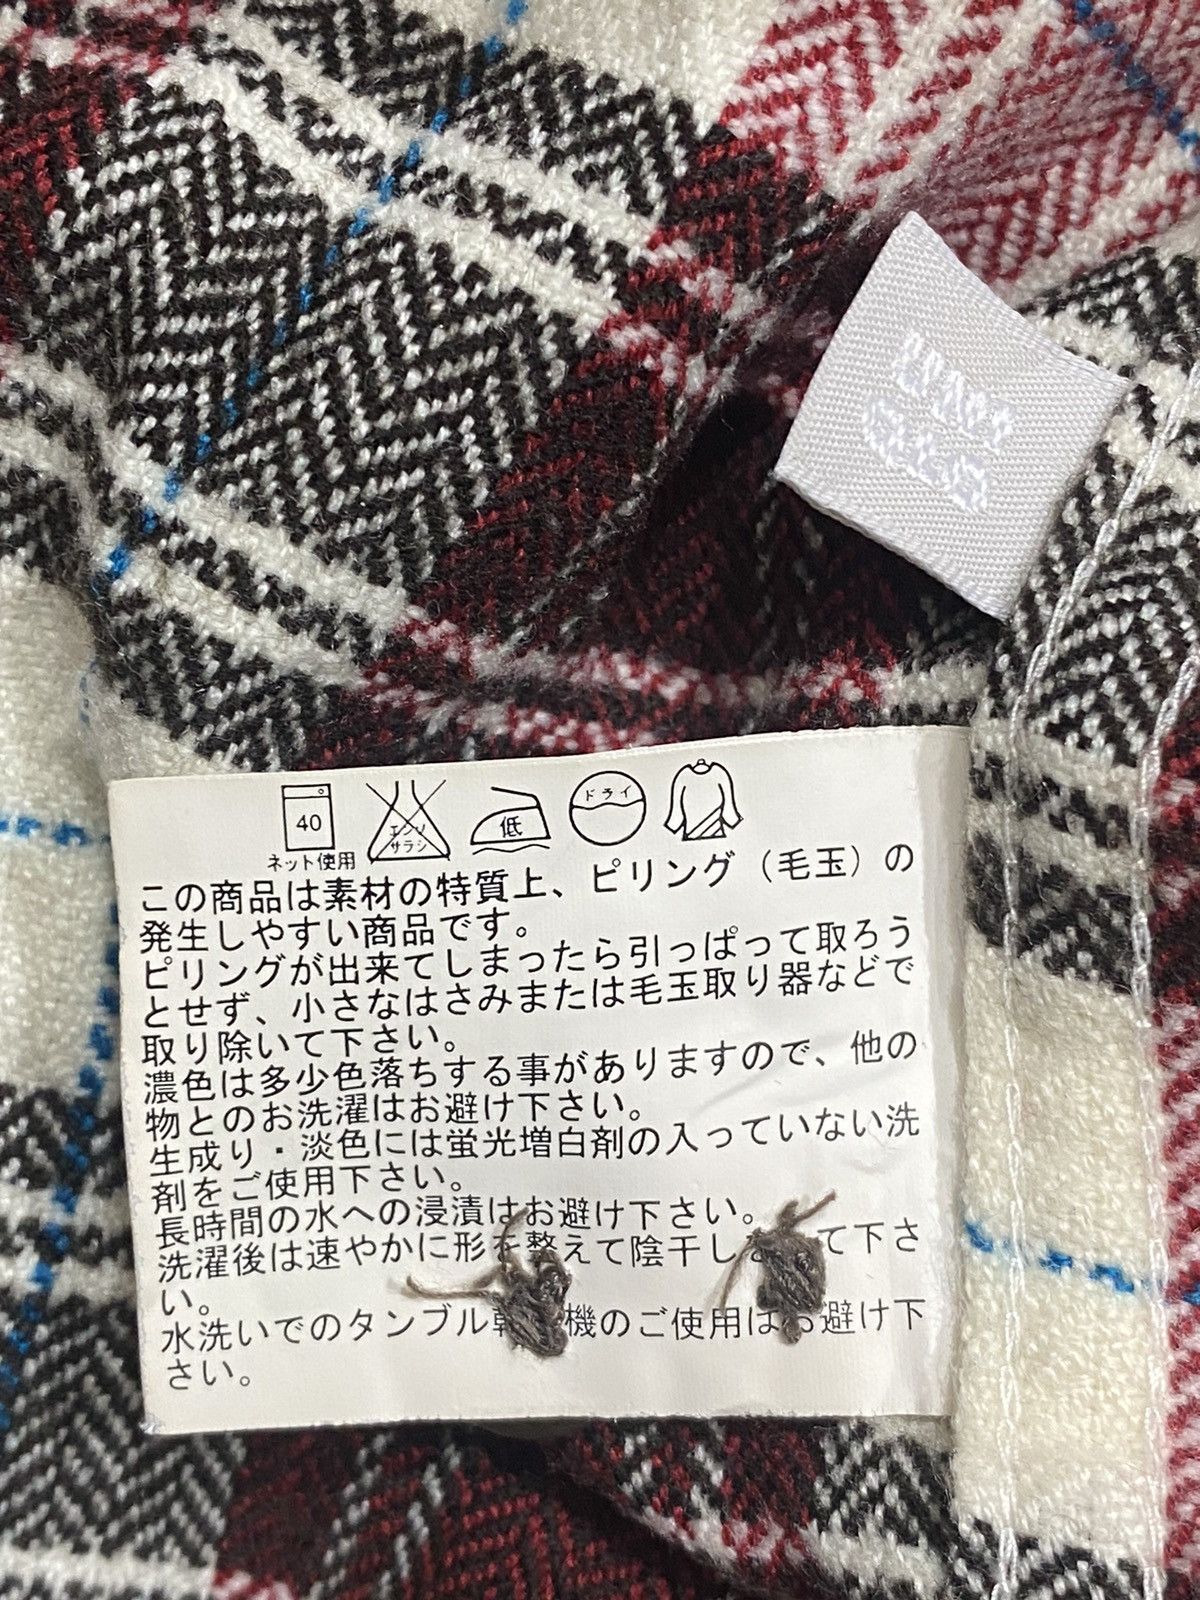 UNI
QLO
40
ネット使用
エンソ
サラシ
低
ドライ
この商品は素材の特質上、ピリング（毛玉）の
発生しやすい商品です。
ピリングが出来てしまったら引っぱって取ろう
とせず、小さなはさみまたは毛玉取り器などで
取り除いて下さい。
濃色は多少色落ちする事がありますので、他の
物とのお洗濯はお避け下さい。
生成り・淡色には蛍光増白剤の入っていない洗
剤をご使用下さい。
長時間の水への浸漬はお避け下さい。
洗濯後は速やかに形を整えて陰干し て下さ
い。
水洗いでのタンブル 機のご使用は 避け下
さい。